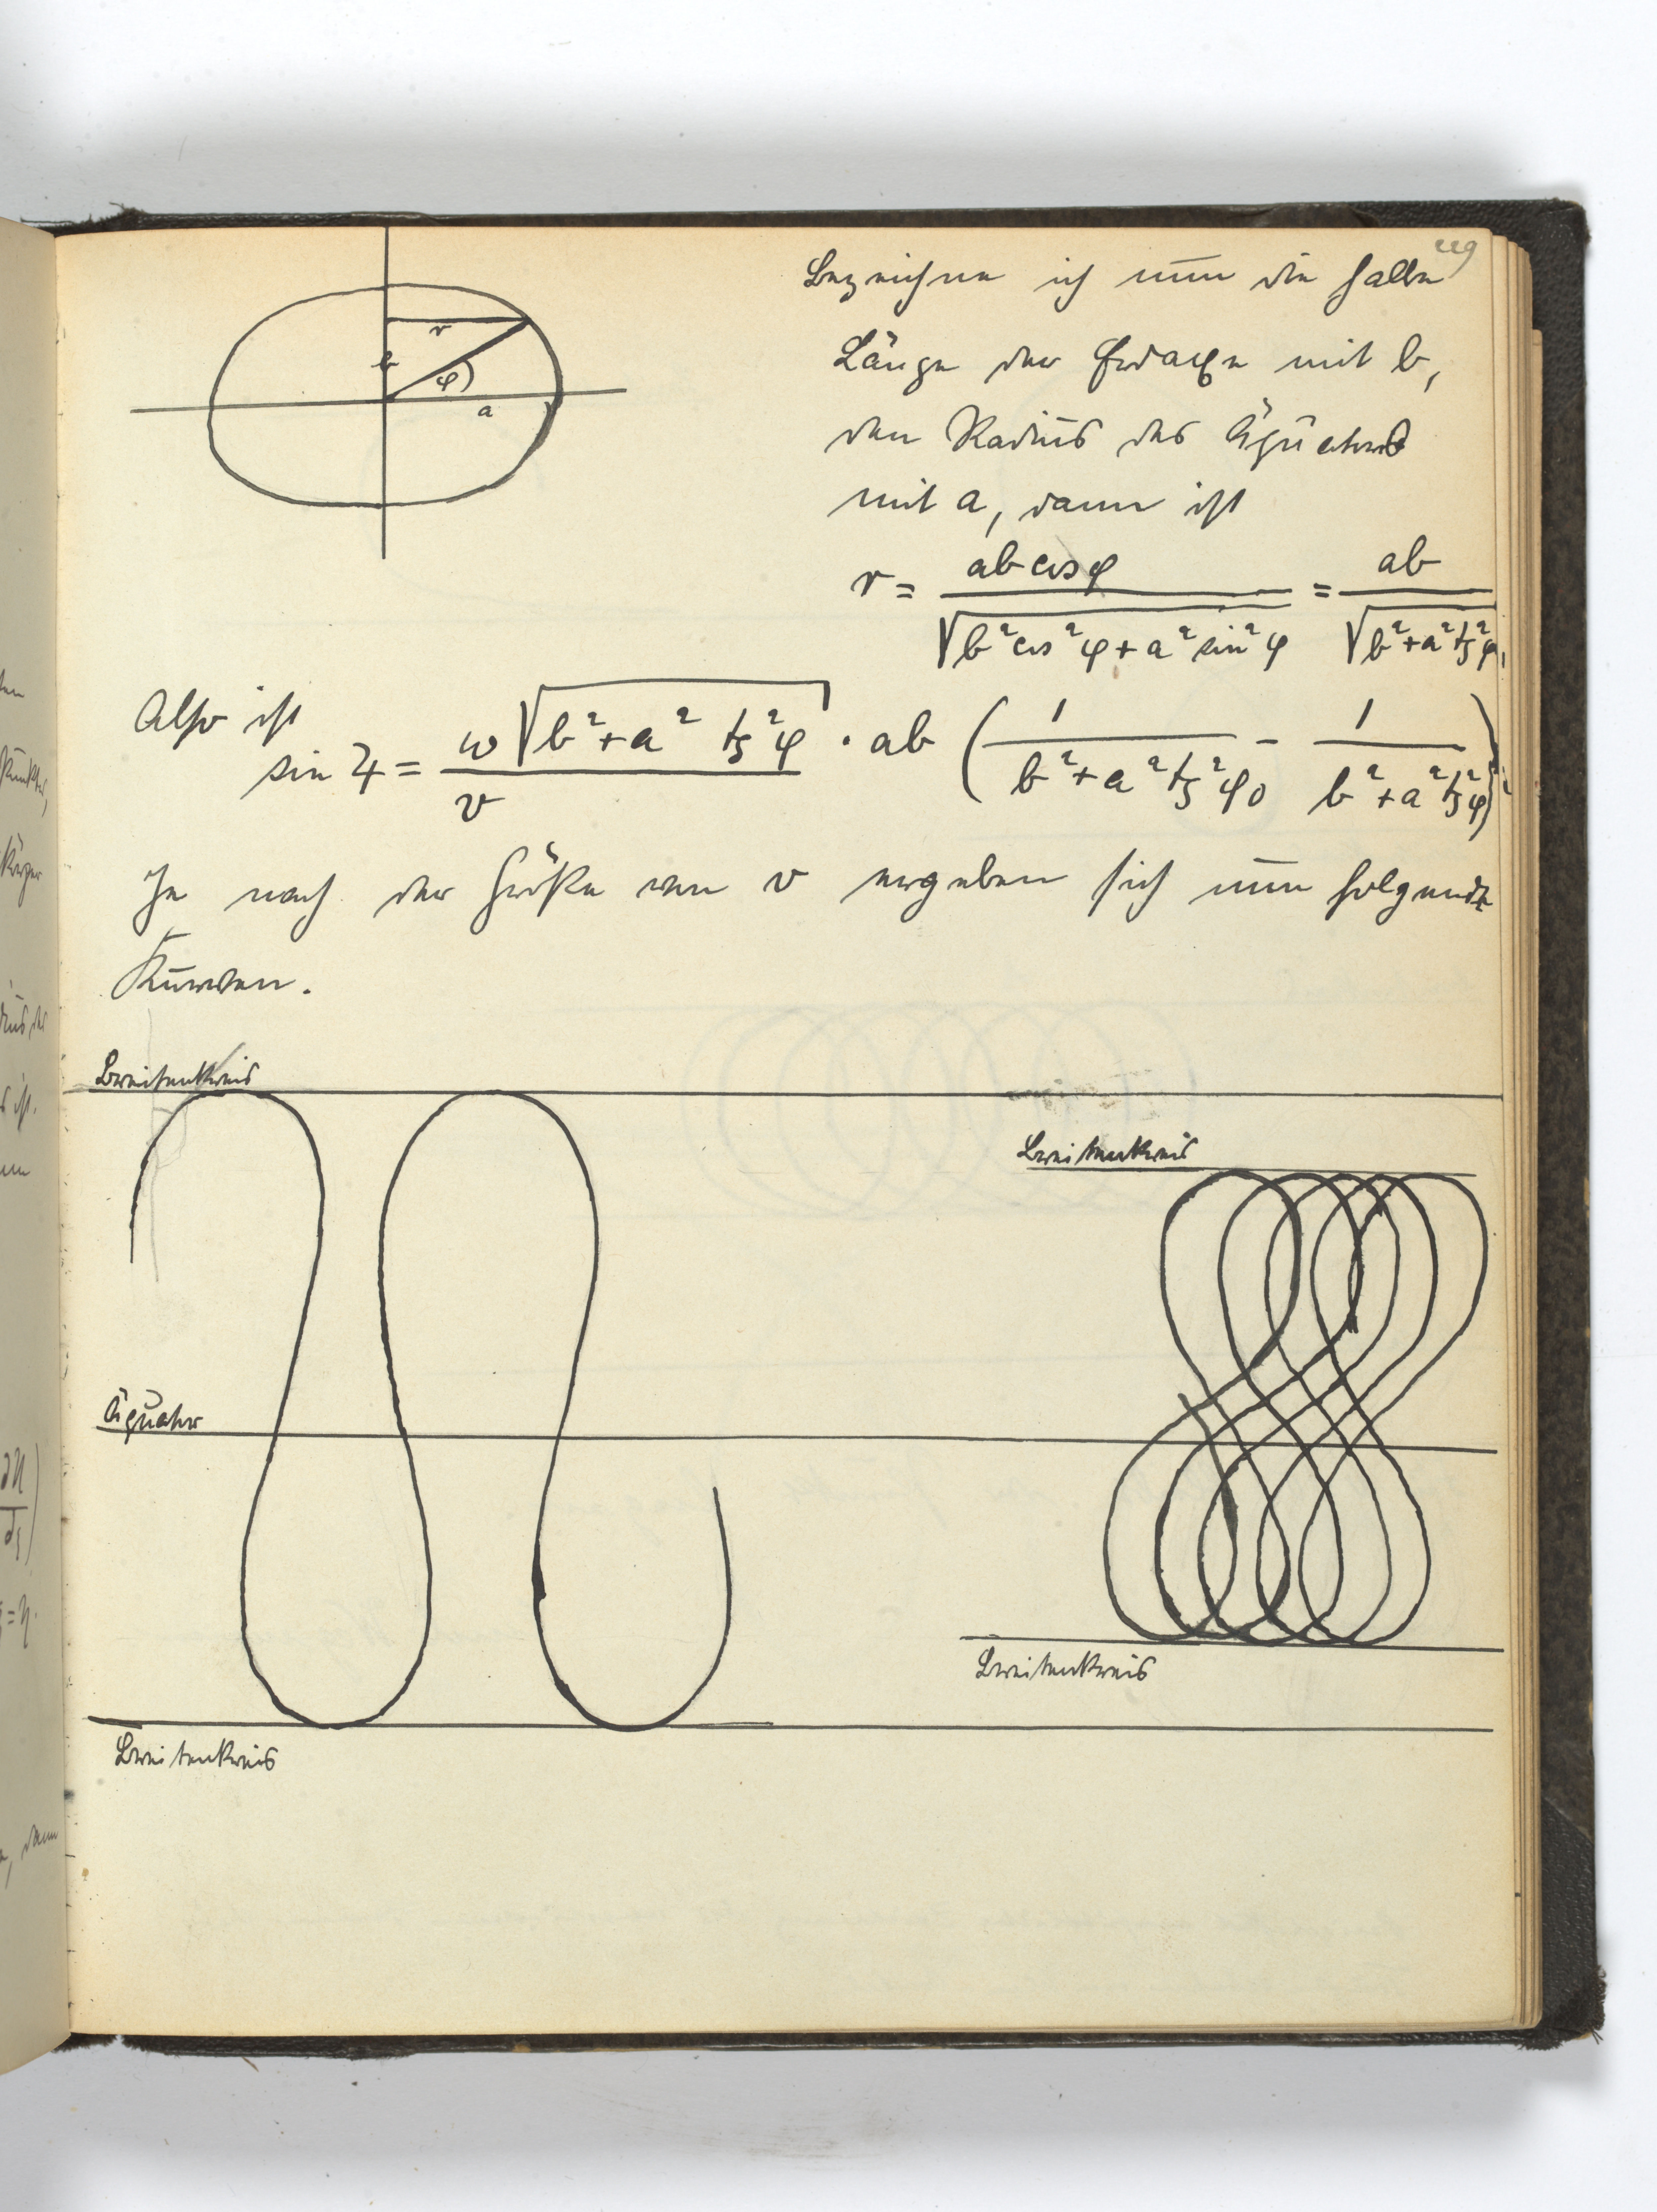 229
Bezeichne ich nun die halbe
Länge der Erdachse mit b,
den Radius des Äquators
mit a, dann ist
r
b
φ
a
r = ab cos φ / √(b² cos² φ + a² sin² φ) = ab / √(b² + a² tg² φ),
Also ist
sin ϑ = ω √(b² + a² tg² φ) / v · ab (1 / (b² + a² tg² φ₀) − 1 / (b² + a² tg² φ)).
Je nach der Größe von v ergeben sich nun folgende
Kurven.
Breitenkreis
Breitenkreis
Äquator
Breitenkreis
Breitenkreis